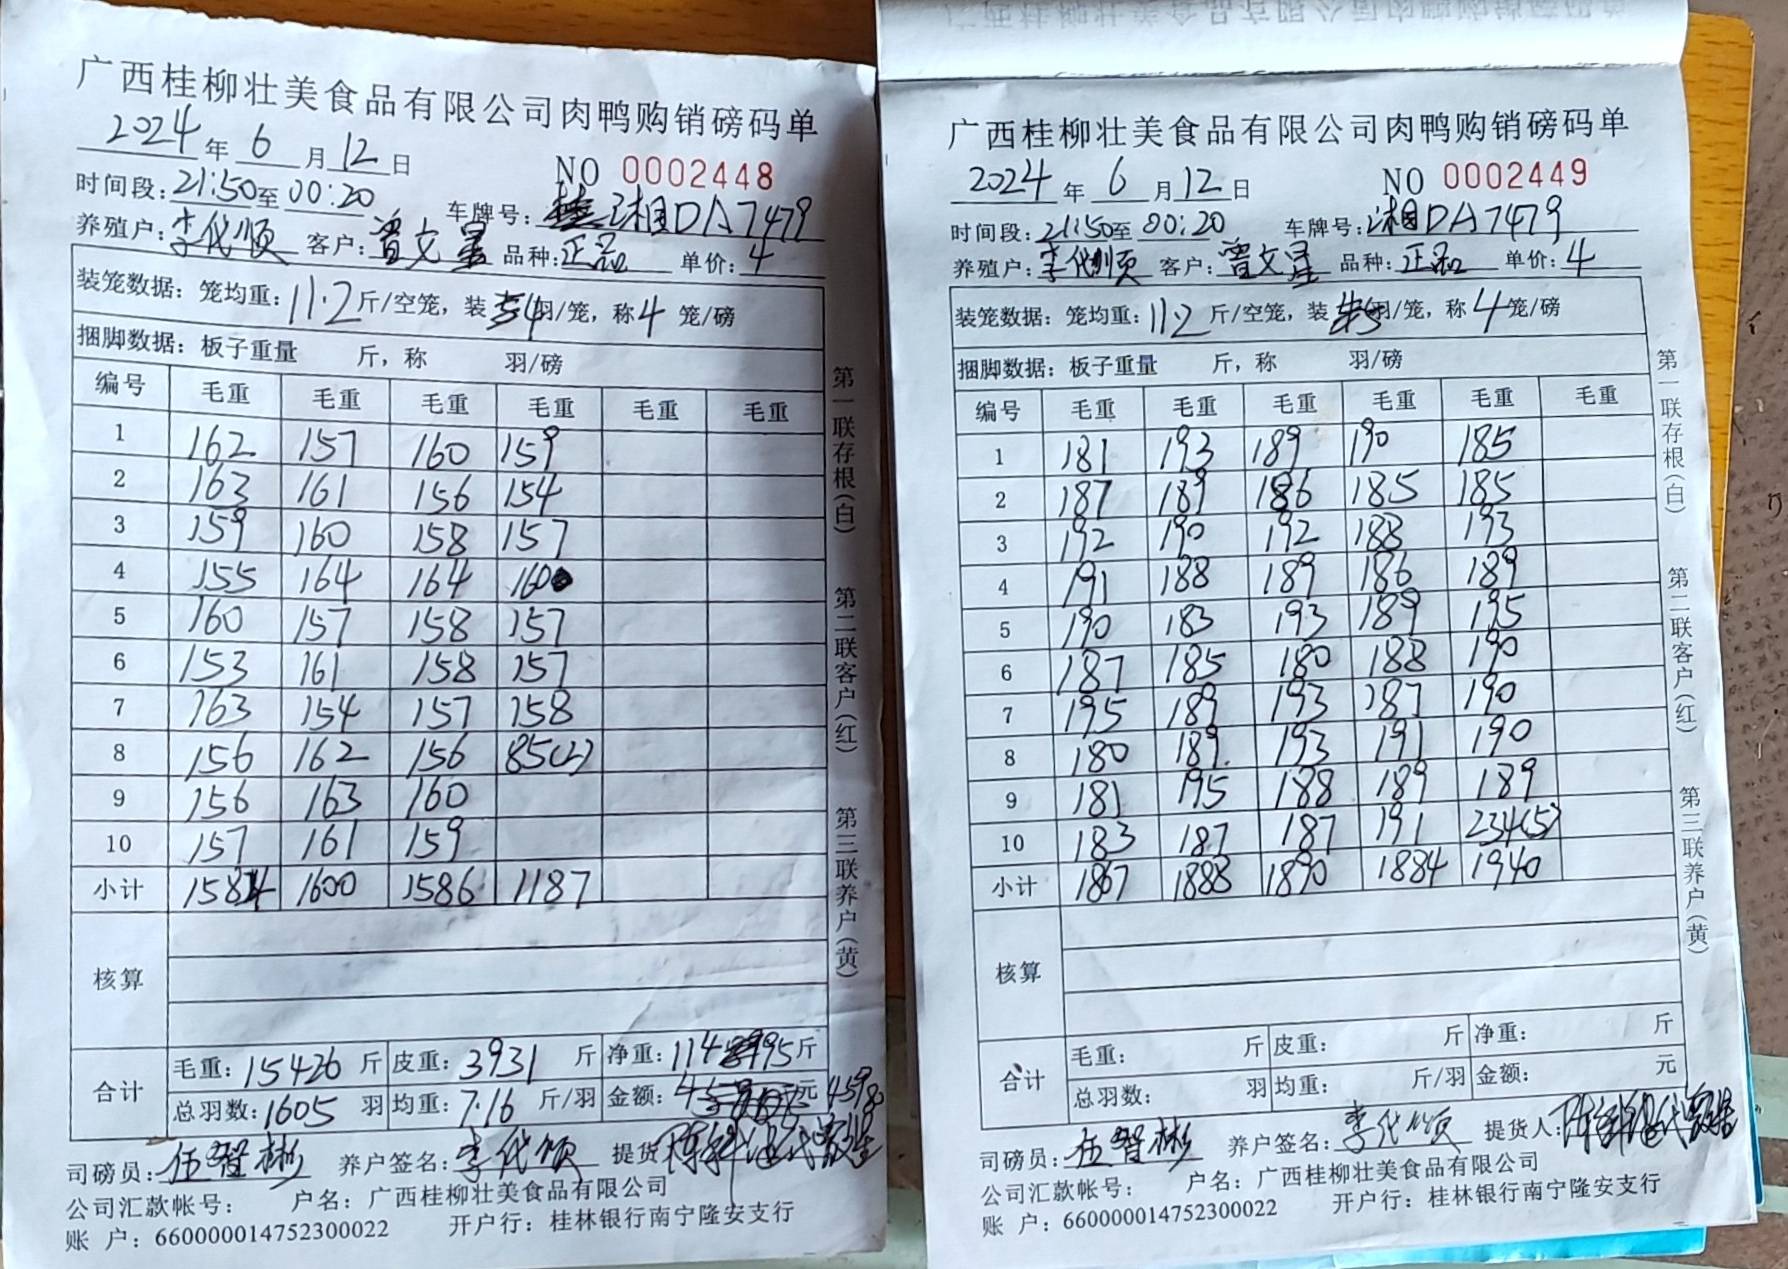 广西桂柳壮美食品有限公司肉鸭购销磅码单
2024年 6月12日
NO 0002448
时间段:21:50至00:20 车牌号:湘DA7479
养殖户:李代顺 客户:曾文星 品种:正品 单价:4
装笼数据:笼均重:11.2斤/空笼,装4羽/笼,称4笼/磅
捆脚数据:板子重量 斤,称 羽/磅
编号 毛重 毛重 毛重 毛重 毛重 毛重
1 162 157 160 159
2 163 161 156 154
3 159 160 158 157
4 155 164 164 160
5 160 157 158 157
6 153 161 158 157
7 163 154 157 158
8 156 162 156 85(2)
9 156 163 160
10 157 161 159
小计 1584 1600 1586 1187
核算
合计 毛重:15426斤 皮重:3931斤 净重:11495斤
总羽数:1605羽 均重:7.16斤/羽 金额:元
司磅员:伍智彬 养户签名:李代顺 提货
公司汇款帐号: 户名:广西桂柳壮美食品有限公司
账 户:660000014752300022 开户行:桂林银行南宁隆安支行
第一联存根(白) 第二联客户(红) 第三联养户(黄)
广西桂柳壮美食品有限公司肉鸭购销磅码单
2024年 6月12日
NO 0002449
时间段:21:50至00:20 车牌号:湘DA7479
养殖户:李代顺 客户:曾文星 品种:正品 单价:4
装笼数据:笼均重:11.2斤/空笼,装5羽/笼,称4笼/磅
捆脚数据:板子重量 斤,称 羽/磅
编号 毛重 毛重 毛重 毛重 毛重 毛重
1 181 193 189 190 185
2 187 189 186 185 185
3 192 190 192 188 193
4 191 188 189 186 189
5 190 183 193 189 195
6 187 185 180 188 190
7 195 189 193 187 190
8 180 189 193 191 190
9 181 195 188 189 189
10 183 187 187 191 234(5)
小计 1867 1888 1890 1884 1940
核算
合计 毛重: 斤 皮重: 斤 净重: 斤
总羽数: 羽 均重: 斤/羽 金额: 元
司磅员:伍智彬 养户签名:李代顺 提货人:
公司汇款帐号: 户名:广西桂柳壮美食品有限公司
账 户:660000014752300022 开户行:桂林银行南宁隆安支行
第一联存根(白) 第二联客户(红) 第三联养户(黄)